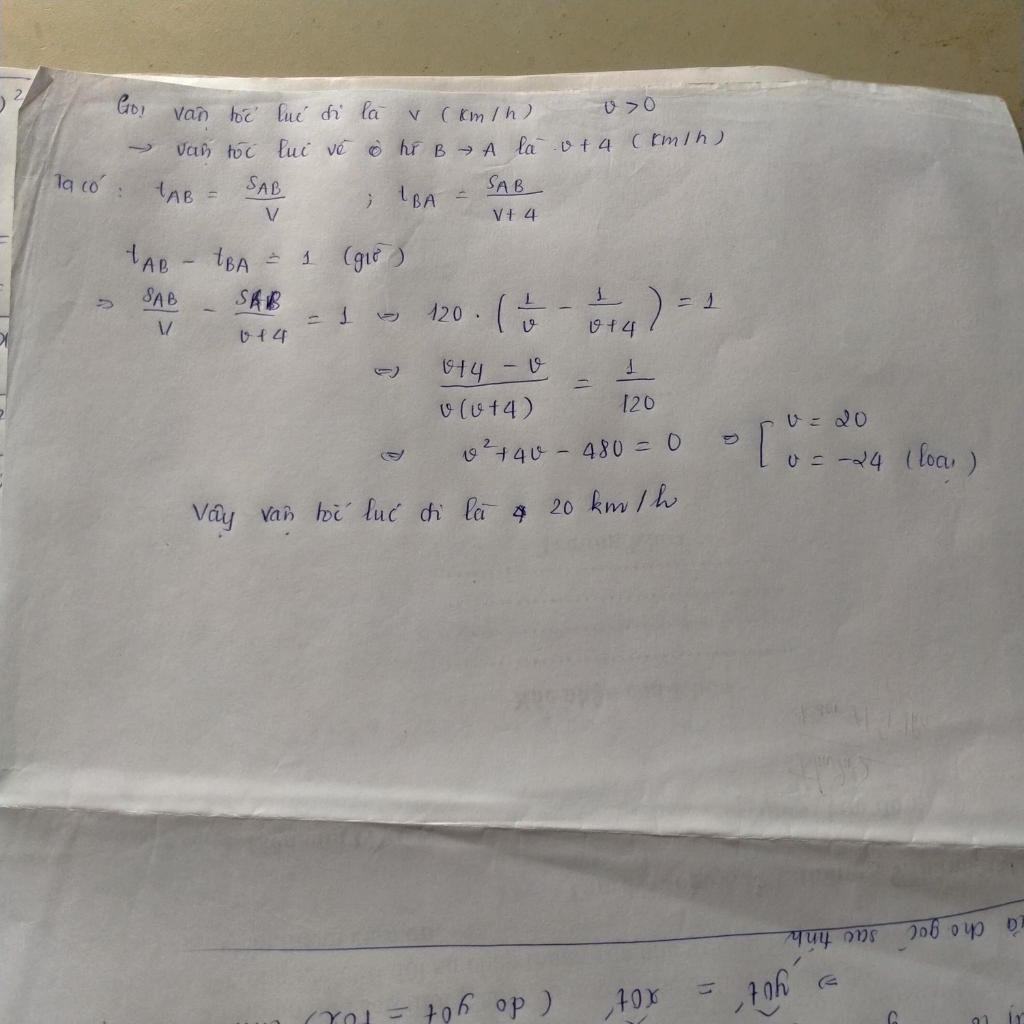 Gọi vận tốc lúc đi là v (km/h) v > 0
→ vận tốc lúc về ô từ B → A là v+4 (km/h)
Ta có : t_AB = S_AB / v ; t_BA = S_AB / v+4
t_AB - t_BA = 1 (giờ)
⇒ S_AB / v - S_AB / v+4 = 1 ⇔ 120 . (1/v - 1/v+4) = 1
⇔ v+4 - v / v(v+4) = 1/120
⇔ v² + 4v - 480 = 0 ⇒ [ v = 20
v = -24 (loại)
Vậy vận tốc lúc đi là 20 km/h
cho góc sao tính
⇒ yôt' = xôt' (do yot =